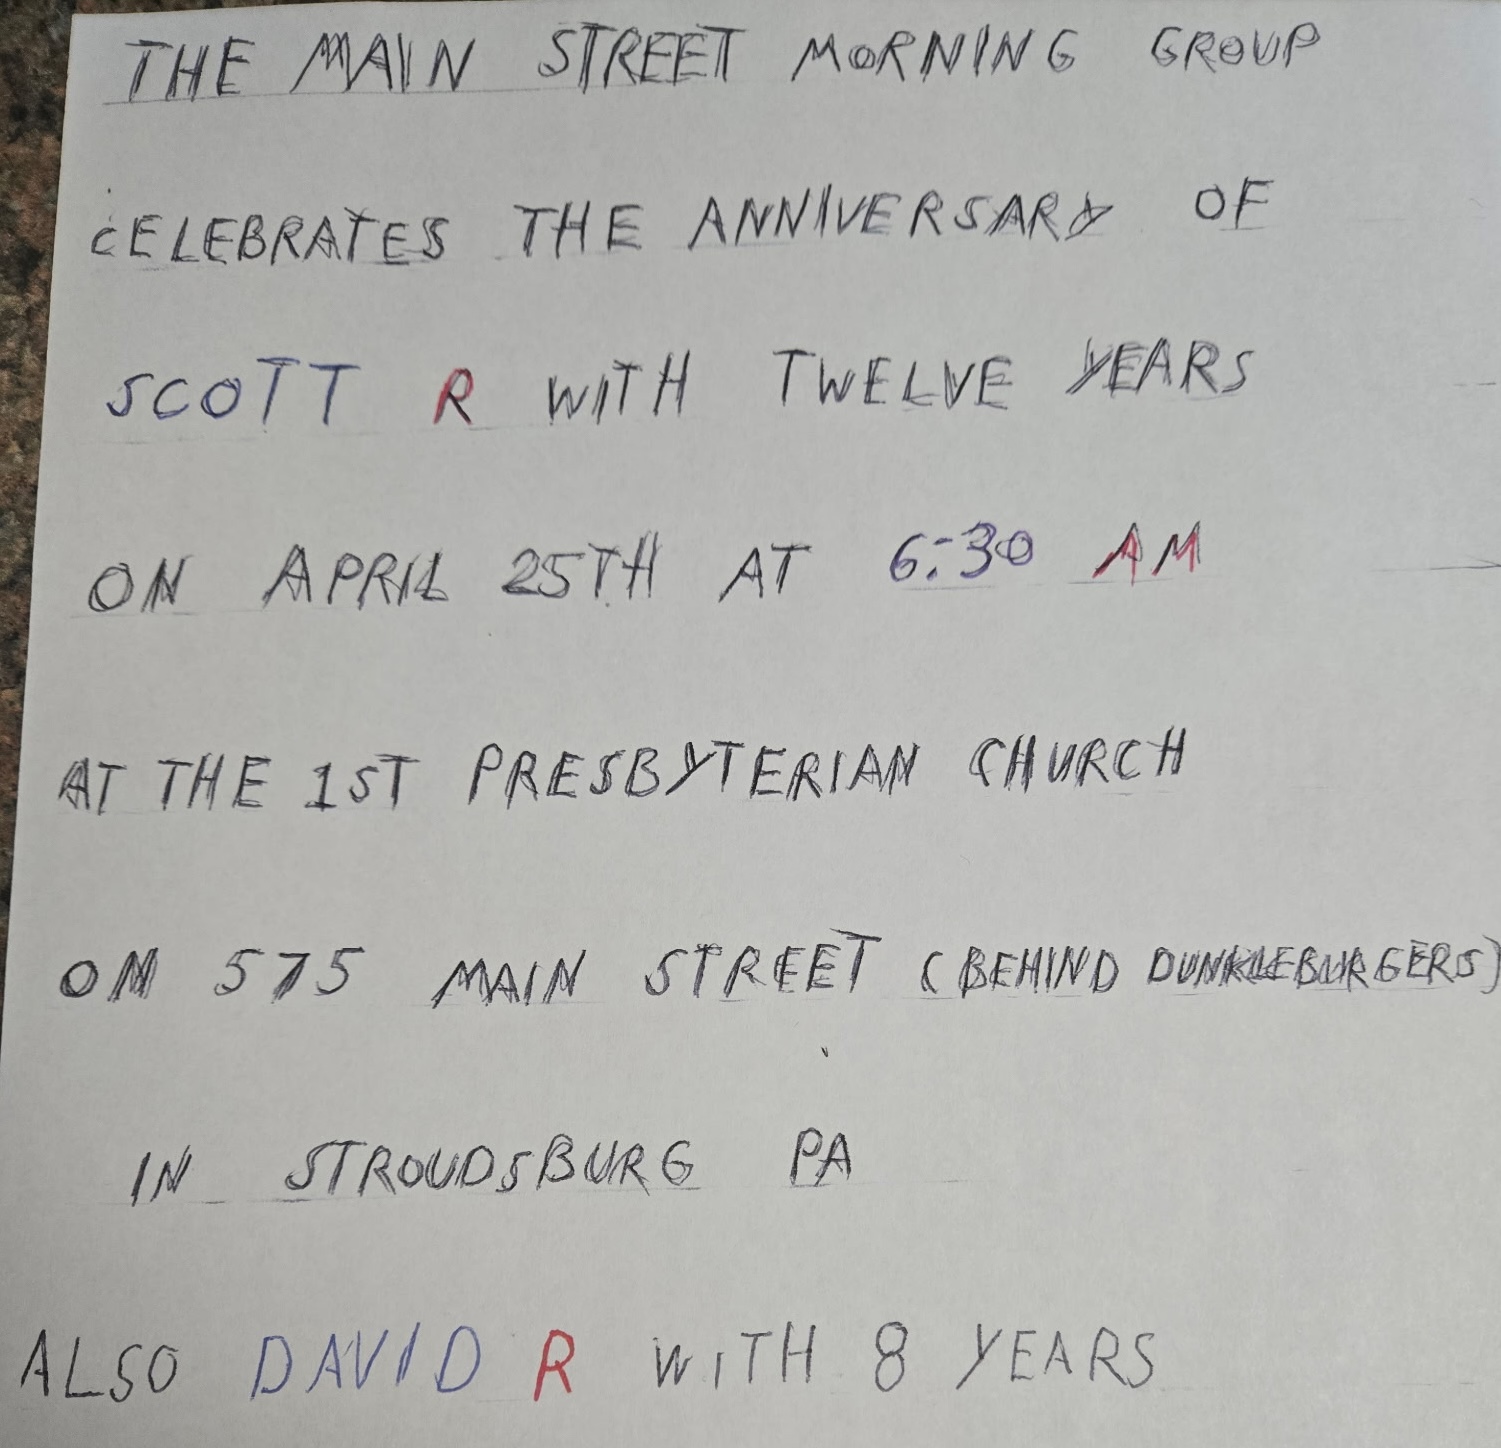 THE MAIN STREET MORNING GROUP
CELEBRATES THE ANNIVERSARY OF
SCOTT R WITH TWELVE YEARS
ON APRIL 25TH AT 6:30 AM
AT THE 1ST PRESBYTERIAN CHURCH
ON 575 MAIN STREET (BEHIND DUNKLEBURGERS)
IN STROUDSBURG PA
ALSO DAVID R WITH 8 YEARS